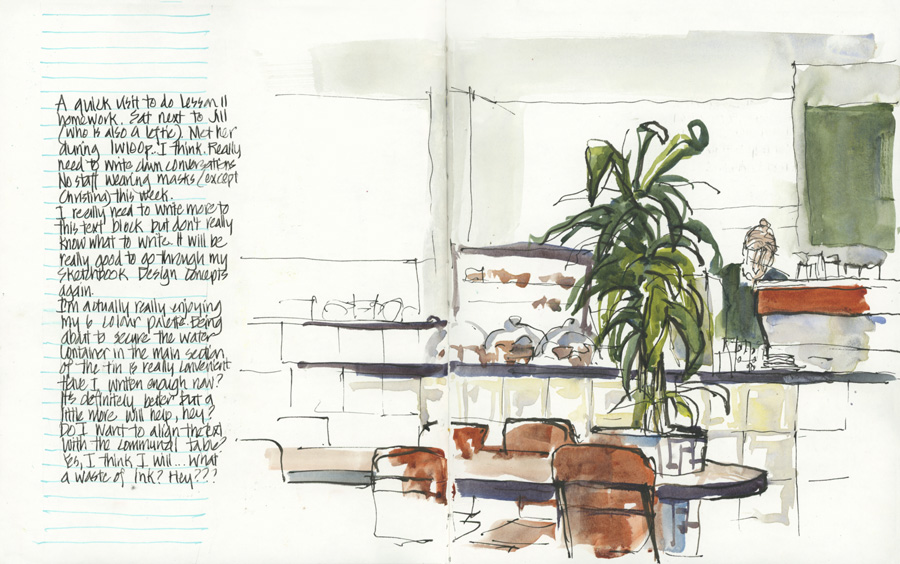 A quick visit to do Lesson 11
homework. Sat next to Jill
(who is also a leftie). Met her
during 1W100P. I think. Really
need to write down conversations
No staff wearing masks (except
Christina) this week.
I really need to write more to
this text block but don't really
know what to write. It will be
really good to go through my
Sketchbook Design concepts
again.
I'm actually really enjoying
my 6 colour palette. Being
about to secure the water
container in the main section
of the tin is really convenient
Have I written enough now?
It's definitely better but a
little more will help, hey?
Do I want to align the text
with the communal table?
Yes, I think I will... What
a waste of ink? Hey???